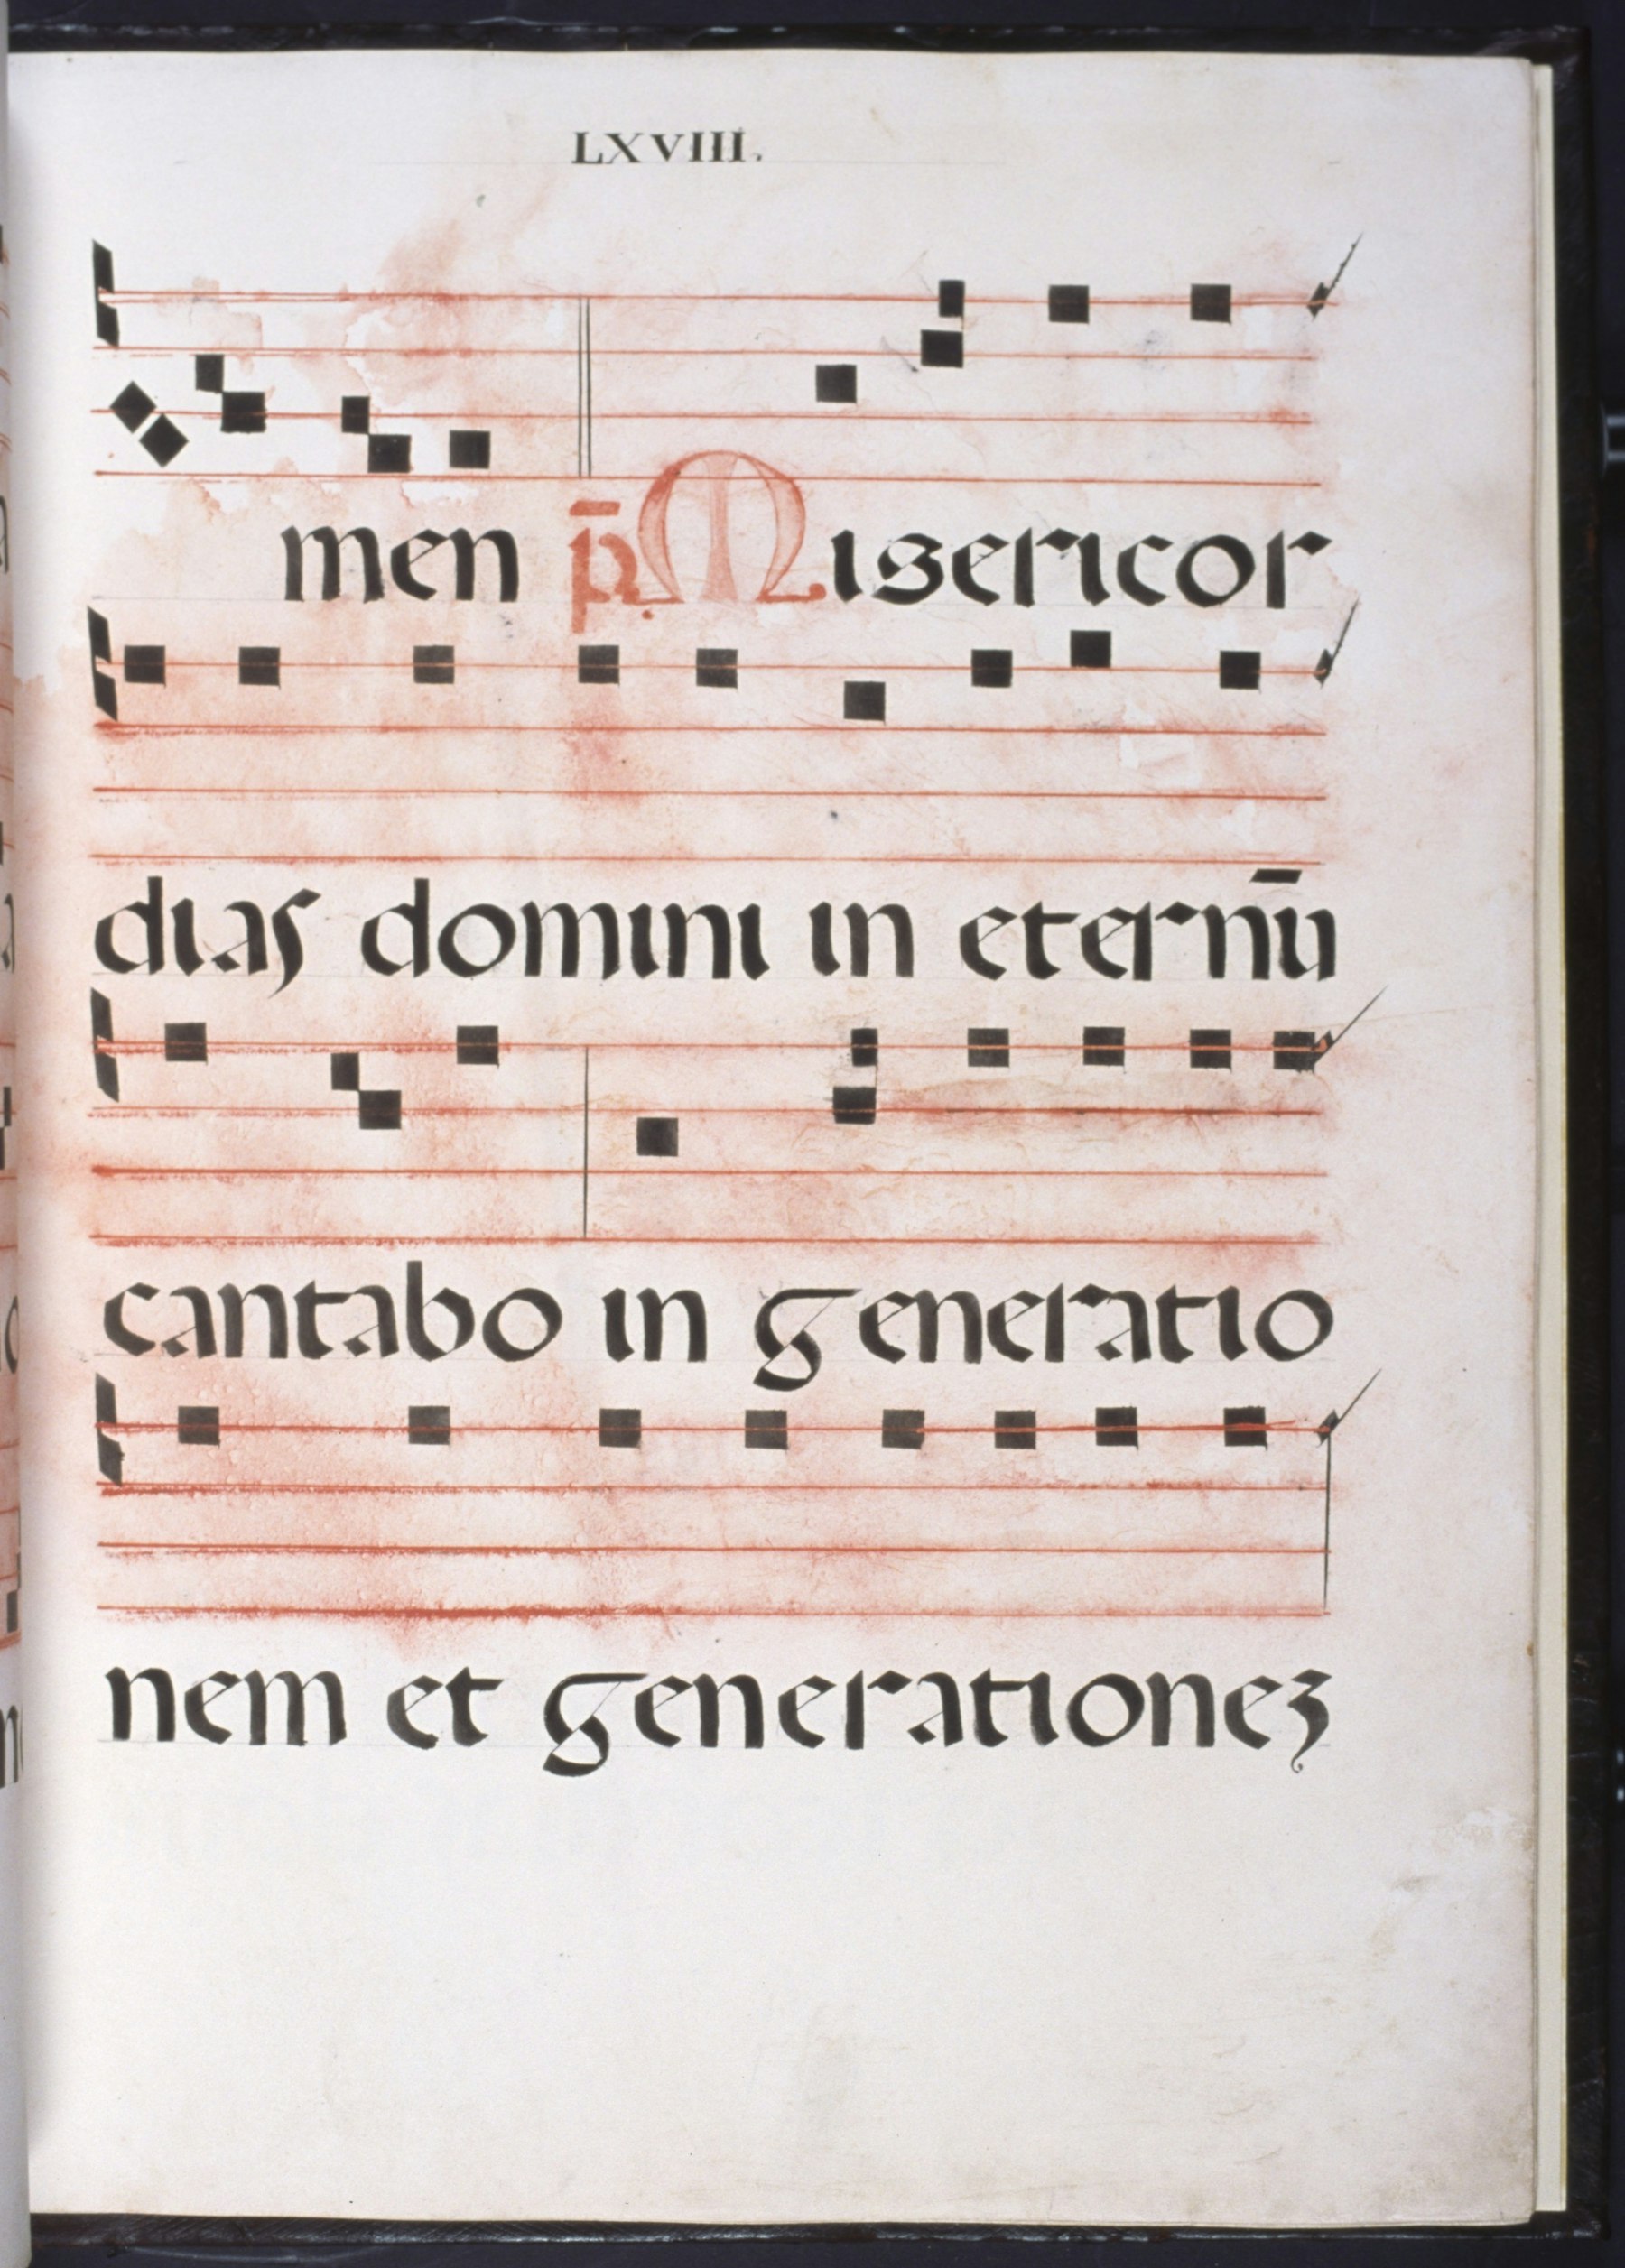 LXVIII.
men p̄. Misericor
dias domini in eternū
cantabo in generatio
nem et generationeʒ